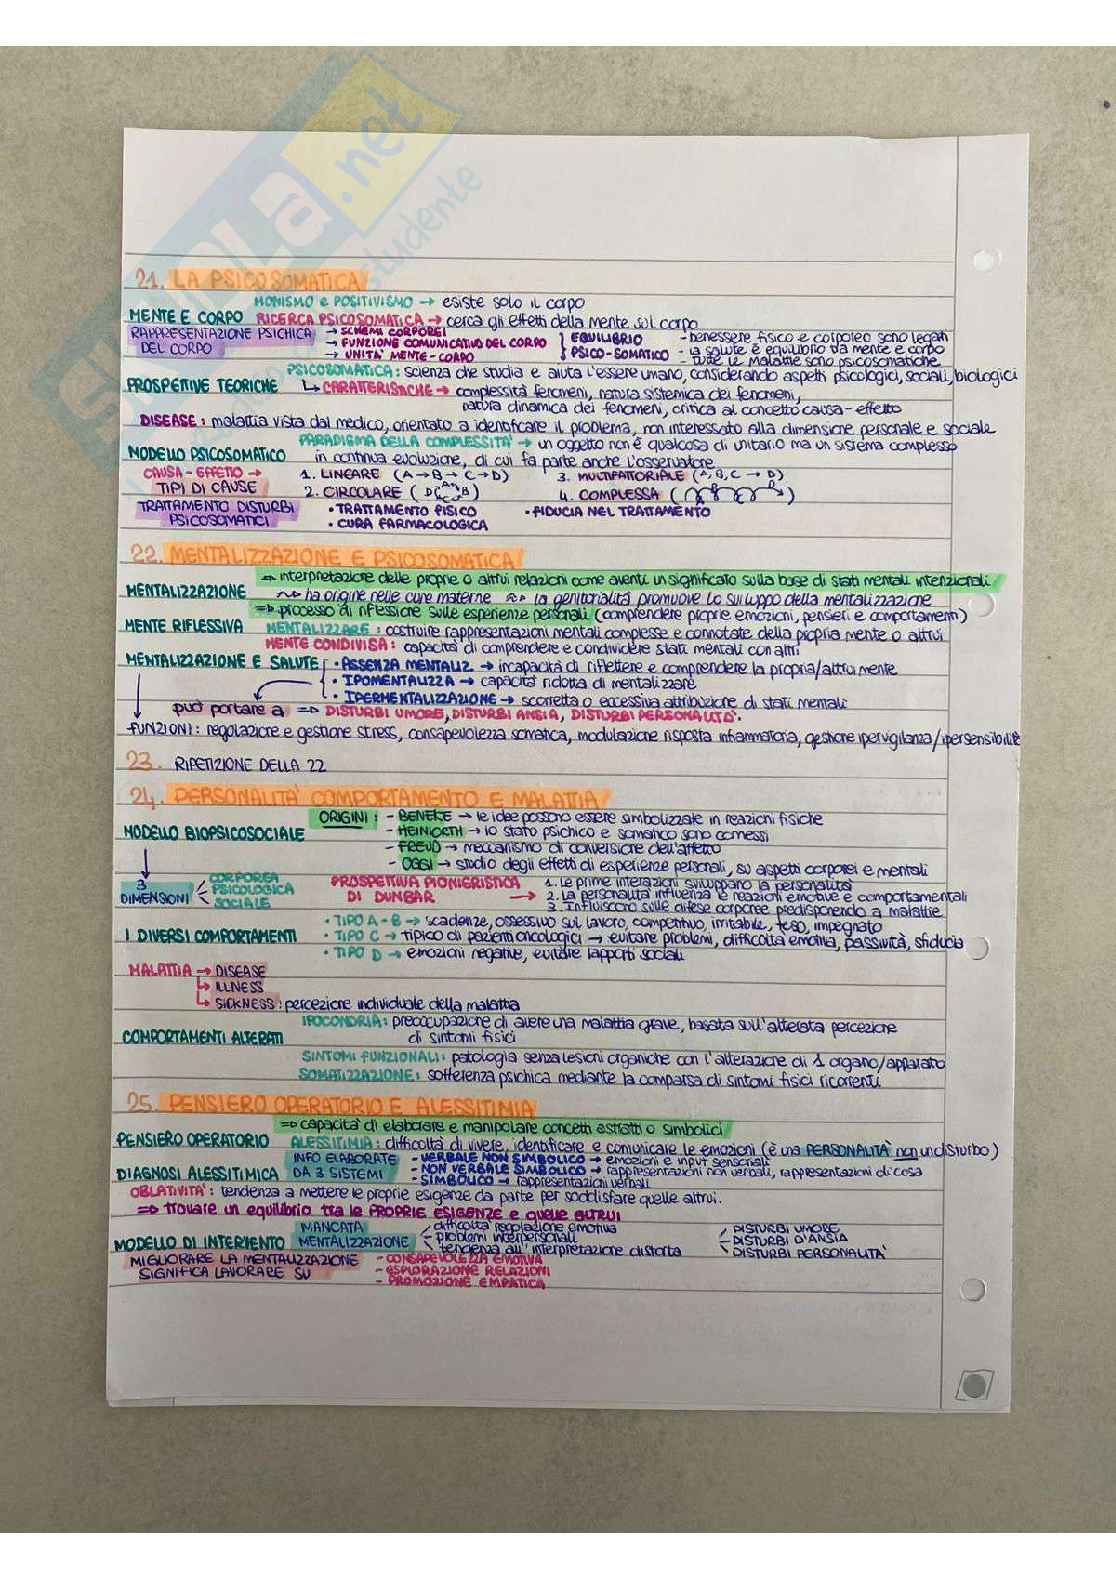 SKUOLA.net
studente
21. LA PSICOSOMATICA
MONISMO e POSITIVISMO → esiste solo il corpo
MENTE E CORPO RICERCA PSICOSOMATICA → cerca gli effetti della mente sul corpo
RAPPRESENTAZIONE PSICHICA DEL CORPO
→ SCHEMI CORPOREI
→ FUNZIONE COMUNICATIVO DEL CORPO
→ UNITA' MENTE-CORPO
EQUILIBRIO PSICO-SOMATICO
- benessere fisico e corporeo sono legati
- la salute è equilibrio da mente e corpo
- tutte le malattie sono psicosomatiche
PSICOSOMATICA: scienza che studia e aiuta l'essere umano, considerando aspetti psicologici, sociali, biologici
PROSPETIVE TEORICHE ↳ CARATTERISTICHE → complessità fenomeni, natura sistemica dei fenomeni,
natura dinamica dei fenomeni, critica al concetto causa-effetto
DISEASE: malattia vista dal medico, orientato a identificare il problema, non interessato alla dimensione personale e sociale
MODELLO PSICOSOMATICO PARADIGMA DELLA COMPLESSITÀ → un oggetto non è qualcosa di unitario ma un sistema complesso
in continua evoluzione, di cui fa parte anche l'osservatore
CAUSA-EFFETTO → TIPI DI CAUSE
1. LINEARE (A→B→C→D)
2. CIRCOLARE
3. MULTIFATTORIALE (A,B,C → D)
4. COMPLESSA
TRATTAMENTO DISTURBI PSICOSOMATICI
• TRATTAMENTO FISICO • FIDUCIA NEL TRATTAMENTO
• CURA FARMACOLOGICA
22. MENTALIZZAZIONE E PSICOSOMATICA
MENTALIZZAZIONE ⇒ interpretazione delle proprie o altrui relazioni come aventi un significato sulla base di stati mentali intenzionali
ha origine nelle cure materne la genitorialità promuove lo sviluppo della mentalizzazione
⇒ processo di riflessione sulle esperienze personali (comprendere proprie emozioni, pensieri e comportamenti)
MENTE RIFLESSIVA MENTALIZZARE: costruire rappresentazioni mentali complesse e connotate della propria mente o altrui
MENTE CONDIVISA: capacità di comprendere e condividere stati mentali con altri
MENTALIZZAZIONE E SALUTE • ASSENZA MENTALIZ → incapacità di riflettere e comprendere la propria/altrui mente
• IPOMENTALIZZA → capacità ridotta di mentalizzare
• IPERMENTALIZZAZIONE → scorretta o eccessiva attribuzione di stati mentali
può portare a ⇒ DISTURBI UMORE, DISTURBI ANSIA, DISTURBI PERSONALITA'.
FUNZIONI: regolazione e gestione stress, consapevolezza somatica, modulazione risposta infiammatoria, gestione ipervigilanza/ipersensibile
23. RIPETIZIONE DELLA 22
24. PERSONALITA' COMPORTAMENTO E MALATTIA
MODELLO BIOPSICOSOCIALE ORIGINI: - BENEKE → le idee possono essere simbolizzate in reazioni fisiche
- HEINIORTH → lo stato psichico e somatico sono connessi
- FREUD → meccanismo di conversione dell'affetto
- OGGI → studio degli effetti di esperienze personali, su aspetti corporei e mentali
3 DIMENSIONI
CORPOREA
PSICOLOGICA
SOCIALE
PROSPETTIVA PIONIERISTICA DI DUNBAR →
1. Le prime interazioni sviluppano la personalità
2. La personalità influenza le reazioni emotive e comportamentali
3. Influiscono sulle difese corporee predisponendo a malattie
I DIVERSI COMPORTAMENTI • TIPO A-B → scadenze, ossessivo sul lavoro, competitivo, irritabile, teso, impegnato
• TIPO C → tipico di pazienti oncologici → evitare problemi, difficoltà emotiva, passività, sfiducia
• TIPO D → emozioni negative, evitare rapporti sociali
MALATTIA → DISEASE
↳ ILLNESS
↳ SICKNESS: percezione individuale della malattia
COMPORTAMENTI ALTERATI IPOCONDRIA: preoccupazione di avere una malattia grave, basata sull'alterata percezione
di sintomi fisici
SINTOMI FUNZIONALI: patologia senza lesioni organiche con l'alterazione di 1 organo/apparato
SOMATIZZAZIONE: sofferenza psichica mediante la comparsa di sintomi fisici ricorrenti
25. PENSIERO OPERATORIO E ALESSITIMIA
⇒ capacità di elaborare e manipolare concetti astratti o simbolici
PENSIERO OPERATORIO ALESSITIMIA: difficoltà di vivere, identificare e comunicare le emozioni (è una PERSONALITÀ non un disturbo)
DIAGNOSI ALESSITIMICA INFO ELABORATE DA 3 SISTEMI
- VERBALE NON SIMBOLICO → emozioni e input sensoriali
- NON VERBALE SIMBOLICO → rappresentazioni non verbali, rappresentazioni di cosa
- SIMBOLICO → rappresentazioni verbali
OBLATIVITA': tendenza a mettere le proprie esigenze da parte per soddisfare quelle altrui.
⇒ trovare un equilibrio tra le PROPRIE ESIGENZE e quelle ALTRUI
MODELLO DI INTERVENTO MANCATA MENTALIZZAZIONE
difficoltà regolazione emotiva
problemi interpersonali
tendenza all'interpretazione distorta
DISTURBI UMORE
DISTURBI D'ANSIA
DISTURBI PERSONALITA'
MIGLIORARE LA MENTALIZZAZIONE SIGNIFICA LAVORARE SU
- CONSAPEVOLEZZA EMOTIVA
- ESPLORAZIONE RELAZIONI
- PROMOZIONE EMPATICA